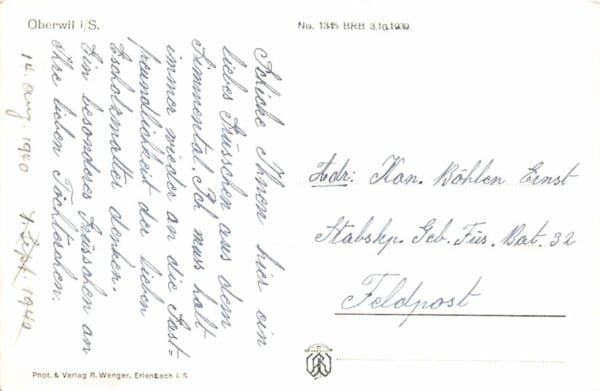 Oberwil i/S.
No. 1345 BRB 3.10.1939.
Schicke Ihnen hier ein
liebes Grüsschen aus dem
Simmental. Ich muss halt
immer wieder an die Gast-
freundlichkeit der lieben
Escholzmatter denken.
Ein besonderes Grüsschen an
Ihre lieben Töchterchen.
14. Aug. 1940
1. Sept. 1940
Adr: Kan. Böhlen Ernst
Stabskp. Geb. Füs. Bat. 32
Feldpost
Phot. & Verlag R. Wenger. Erlenbach i. S.